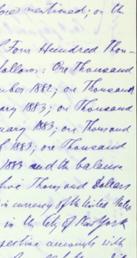 fore mentioned; on the
Four Hundred Thou-
follows: One Thousand
mber 1882; on Thousand
ary 1883; on Thousand
uary 1883; on Thousand
1883; on Thousand
1883 and the balance
five Thousand Dollars
in currency of the United States
in the City of New York
pective amounts with